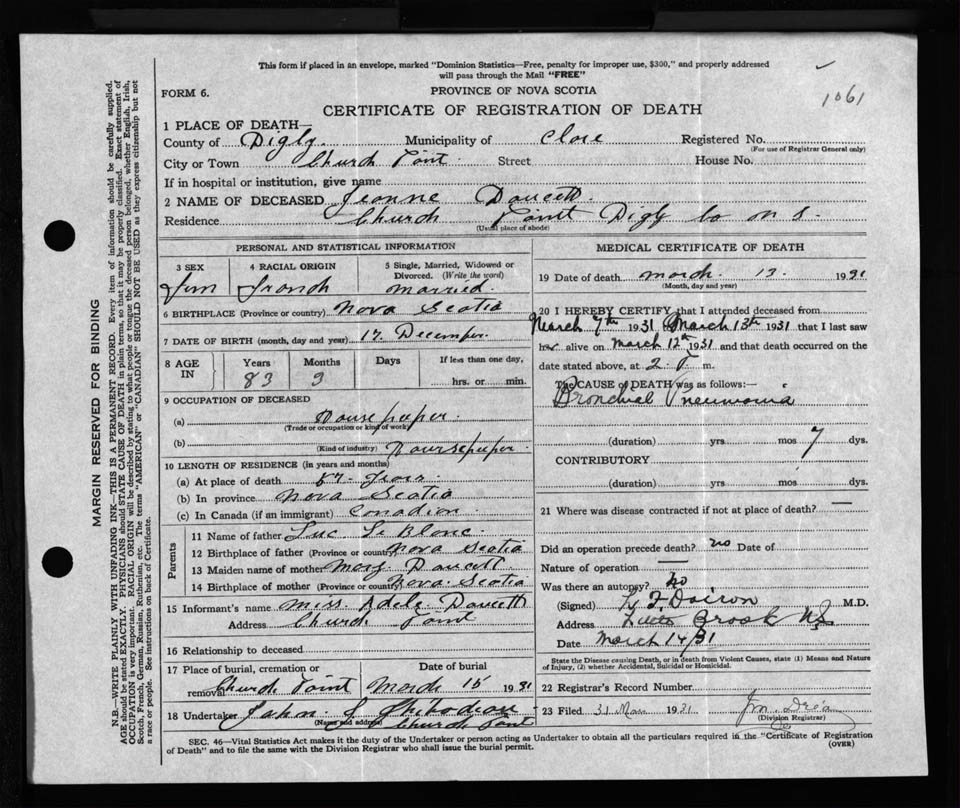 This form if placed in an envelope, marked "Dominion Statistics—Free, penalty for improper use, $300," and properly addressed
will pass through the Mail "FREE"
1061
FORM 6.
PROVINCE OF NOVA SCOTIA
CERTIFICATE OF REGISTRATION OF DEATH
1 PLACE OF DEATH—
County of Digby Municipality of Clare Registered No.
(For use of Registrar General only)
City or Town Church Point Street House No.
If in hospital or institution, give name
2 NAME OF DECEASED Jeanne Doucett
Residence Church Point Digby Co N S.
(Usual place of abode)
PERSONAL AND STATISTICAL INFORMATION
3 SEX 4 RACIAL ORIGIN 5 Single, Married, Widowed or
Divorced. (Write the word)
Fem French Married.
6 BIRTHPLACE (Province or country) Nova Scotia
7 DATE OF BIRTH (month, day and year) 17. December.
8 AGE IN Years Months Days If less than one day,
83 3 hrs. or min.
9 OCCUPATION OF DECEASED
(a) Housekeeper.
(Trade or occupation or kind of work)
(b) Housekeeper
(Kind of industry)
10 LENGTH OF RESIDENCE (in years and months)
(a) At place of death years
(b) In province Nova Scotia
(c) In Canada (if an immigrant) Canadian
Parents
11 Name of father Luc LeBlanc
12 Birthplace of father (Province or country) Nova Scotia
13 Maiden name of mother Marg Doucett
14 Birthplace of mother (Province or country) Nova Scotia
15 Informant's name Miss Adele Doucett
Address Church Point
16 Relationship to deceased
17 Place of burial, cremation or removal Date of burial
Church Point March 15 1931
18 Undertaker John Thibodeau
(Name and address) Church Point
MEDICAL CERTIFICATE OF DEATH
19 Date of death March 13. 1931
(Month, day and year)
20 I HEREBY CERTIFY that I attended deceased from
March 7th 1931 to March 13th 1931 that I last saw
her alive on March 12th 1931 and that death occurred on the
date stated above, at 2 P. m.
The CAUSE of DEATH was as follows:—
Bronchial Pneumonia
(duration) yrs mos 7 dys.
CONTRIBUTORY
(duration) yrs. mos. dys.
21 Where was disease contracted if not at place of death? —
Did an operation precede death? no Date of
Nature of operation —
Was there an autopsy? No
(Signed) Doiron M.D.
Address Little Brook NS
Date March 14/31
State the Disease causing Death, or in death from Violent Causes, state (1) Means and Nature
of Injury, (2) whether Accidental, Suicidal or Homicidal.
22 Registrar's Record Number
23 Filed 31 Mar 1931
(Division Registrar)
SEC. 46—Vital Statistics Act makes it the duty of the Undertaker or person acting as Undertaker to obtain all the particulars required in the "Certificate of Registration
of Death" and to file the same with the Division Registrar who shall issue the burial permit. (OVER)
MARGIN RESERVED FOR BINDING
N.B.—WRITE PLAINLY WITH UNFADING INK—THIS IS A PERMANENT RECORD. Every item of information should be carefully supplied.
AGE should be stated EXACTLY. PHYSICIANS should STATE CAUSE OF DEATH in plain terms, so that it may be properly classified. Exact statement of
OCCUPATION is very important. RACIAL ORIGIN will be described by stating to what people or tongue the deceased person belonged, whether English, Irish,
Scotch, French, German, Russian, Ruthenian, etc. The terms "AMERICAN" or "CANADIAN" SHOULD NOT BE USED as they express citizenship but not
a race or people. See instructions on back of Certificate.